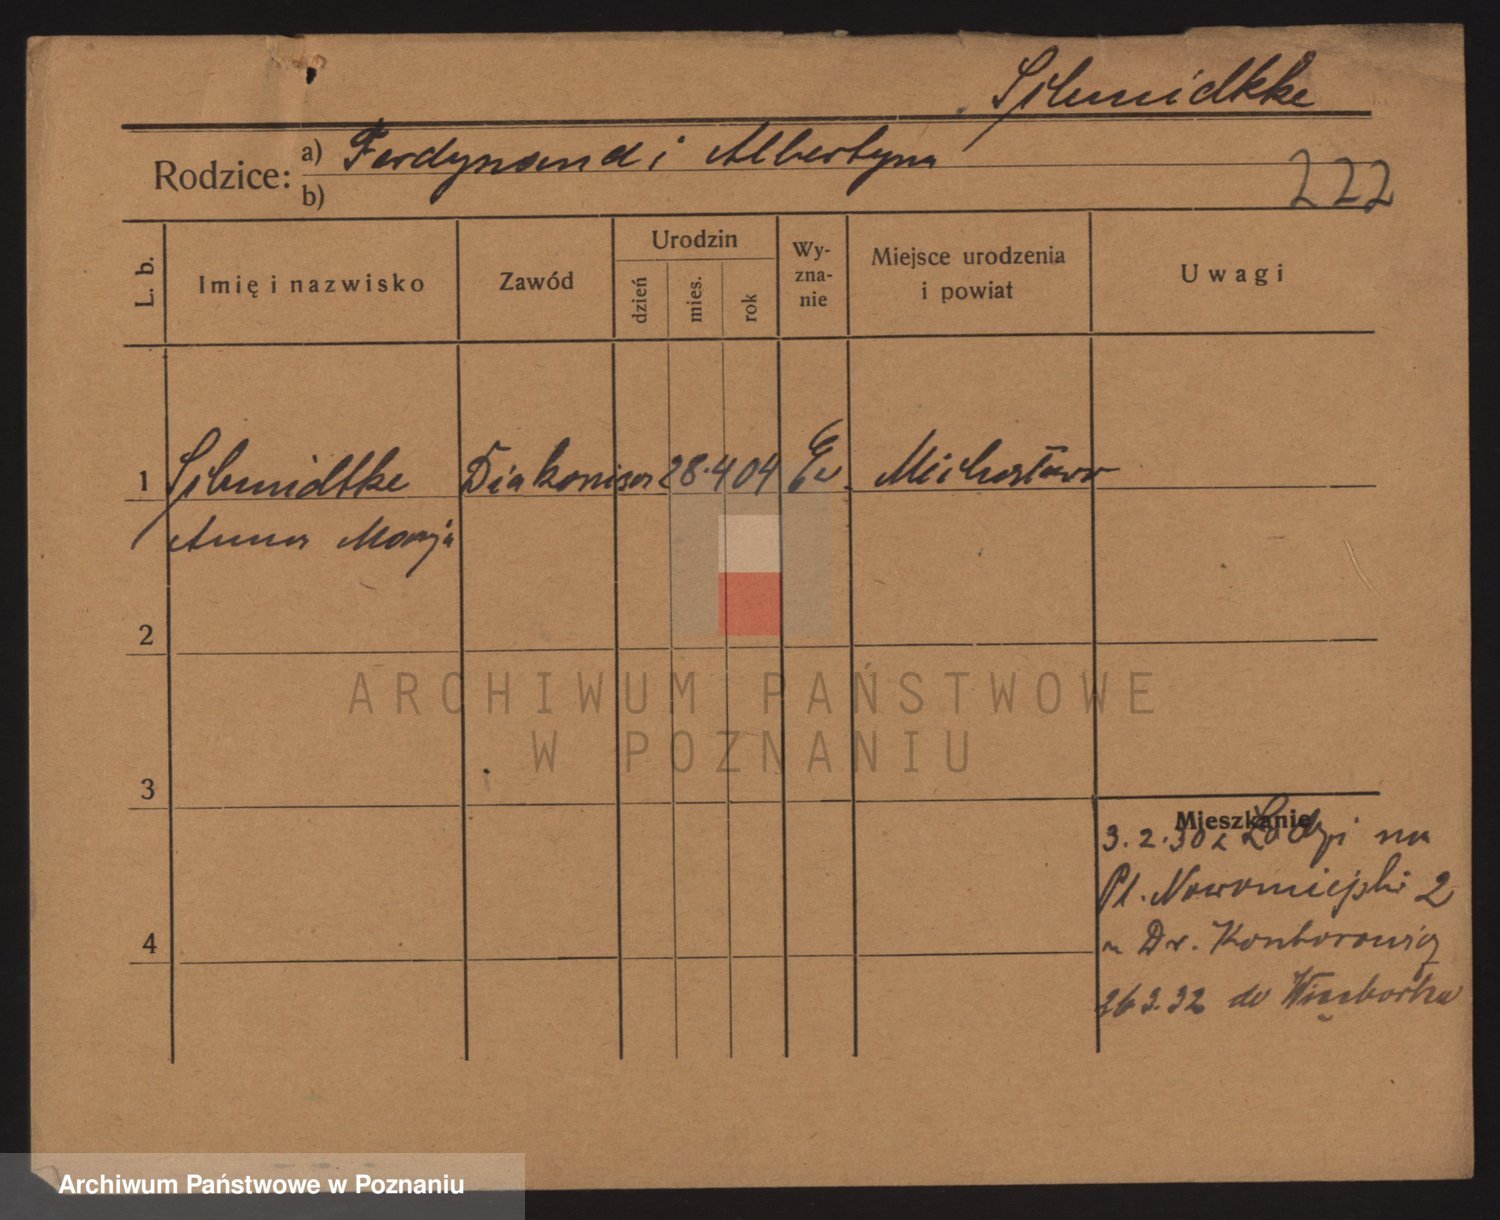 Schmidtke
Rodzice: a) Ferdynand i Albertyna
b)
222
L. b.
Imię i nazwisko
Zawód
Urodzin
dzień
mies.
rok
Wy-
zna-
nie
Miejsce urodzenia
i powiat
Uwagi
1 Schmidtke Diakonisa 28.4 04 Ew. Michostaw
Anna Marja
2
3
4
Mieszkanie
3.2.30 z Łodzi na
Pl. Nowomiejski 2
u Dr. Kantorowicz
26 3.32 do Więcborka
ARCHIWUM PAŃSTWOWE
W POZNANIU
Archiwum Państwowe w Poznaniu